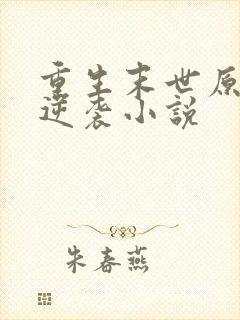 重生末世原
逆袭小说
朱春燕